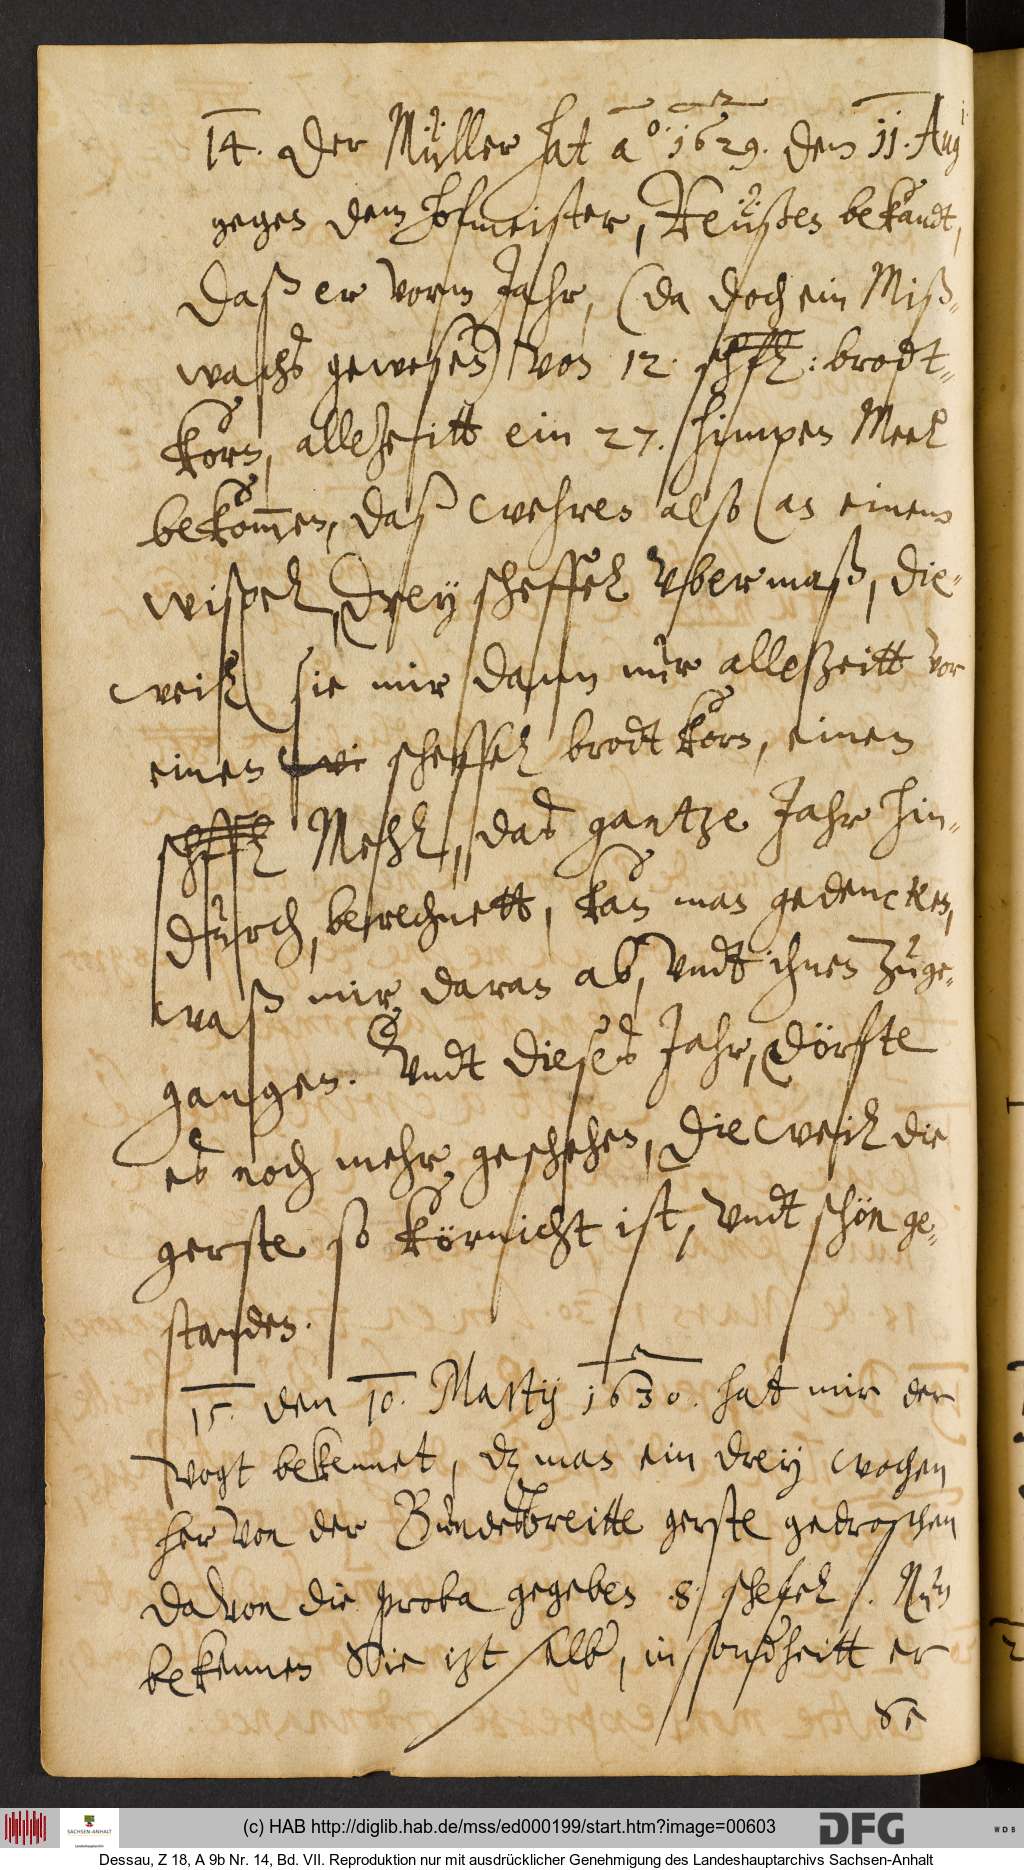 14. Der Müller hat ao: 1629. den 11. Aug:
gegen dem Hofmeister, Reüßen bekandt,
daß er vorm Jahr, (da doch ein Miß-
wachß gewesen) von 12. schfl: brodt-
korn, allezeitt ein 27. himpen Meel
bekommen, daß wehren also an einem
wispel, drey scheffel vbermaß, die-
weil sie mir dann nur alleßzeitt vor
einen scheffel brodt korn, einen
schffl Mehl, das gantze Jahr hin-
durch, berechnett, kan man gedencken,
waß mir daran ab, vndt ihnen zuge-
gangen. Vndt dieses Jahr, dörfte
es noch mehr geschehen, dieweil die
gerste so körnicht ist, vndt schön ge-
standen.
15. den 10. Martij 1630. hat mir der
vogt bekennet, dz man ein drey wochen
her von der Bundesbreitte gerste gedroschen
davon die proba gegeben 8 schefel. Nun
bekennen Sie izt selb, insonderheitt er
Se
(c) HAB http://diglib.hab.de/mss/ed000199/start.htm?image=00603
SACHSEN-ANHALT
DFG
WDB
Dessau, Z 18, A 9b Nr. 14, Bd. VII. Reproduktion nur mit ausdrücklicher Genehmigung des Landeshauptarchivs Sachsen-Anhalt